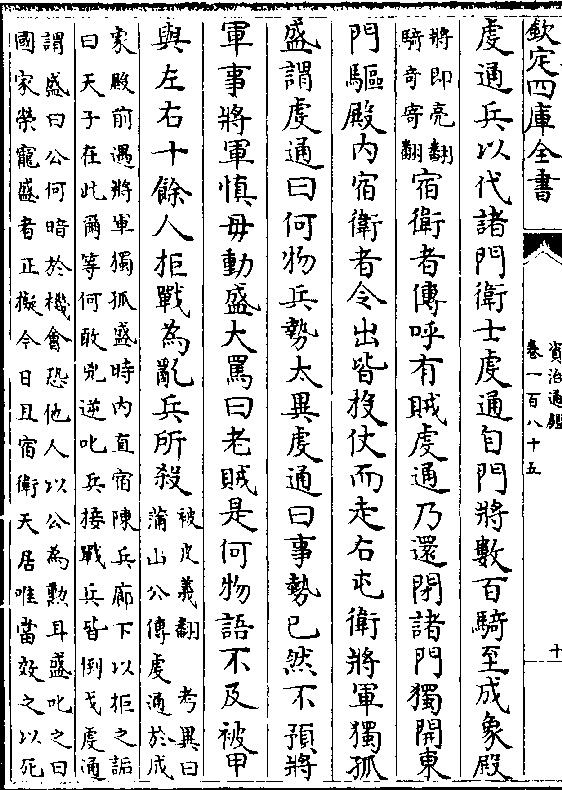 欽定四庫全書
資治通鑑
卷一百八十五
十
虔通兵以代諸門衛士虔通自門將數百騎至成象殿
將即亮翻
騎奇寄翻
宿衛者傳呼有賊虔通乃還閉諸門獨開東
門驅殿內宿衛者令出皆投仗而走右屯衛將軍獨孤
盛謂虔通曰何物兵勢太異虔通曰事勢已然不預將
軍事將軍慎毋動盛大罵曰老賊是何物語不及被甲
與左右十餘人拒戰為亂兵所殺
被皮義翻 考異曰
蒲山公傳虔通於成
象殿前遇將軍獨孤盛時內直宿陳兵廊下以拒之詬
曰天子在此爾等何敢兇逆叱兵接戰兵皆倒戈虔通
謂盛曰公何暗於機會恐他人以公為勲耳盛叱之曰
國家榮寵盛者正擬今日且宿衛天居唯當效之以死